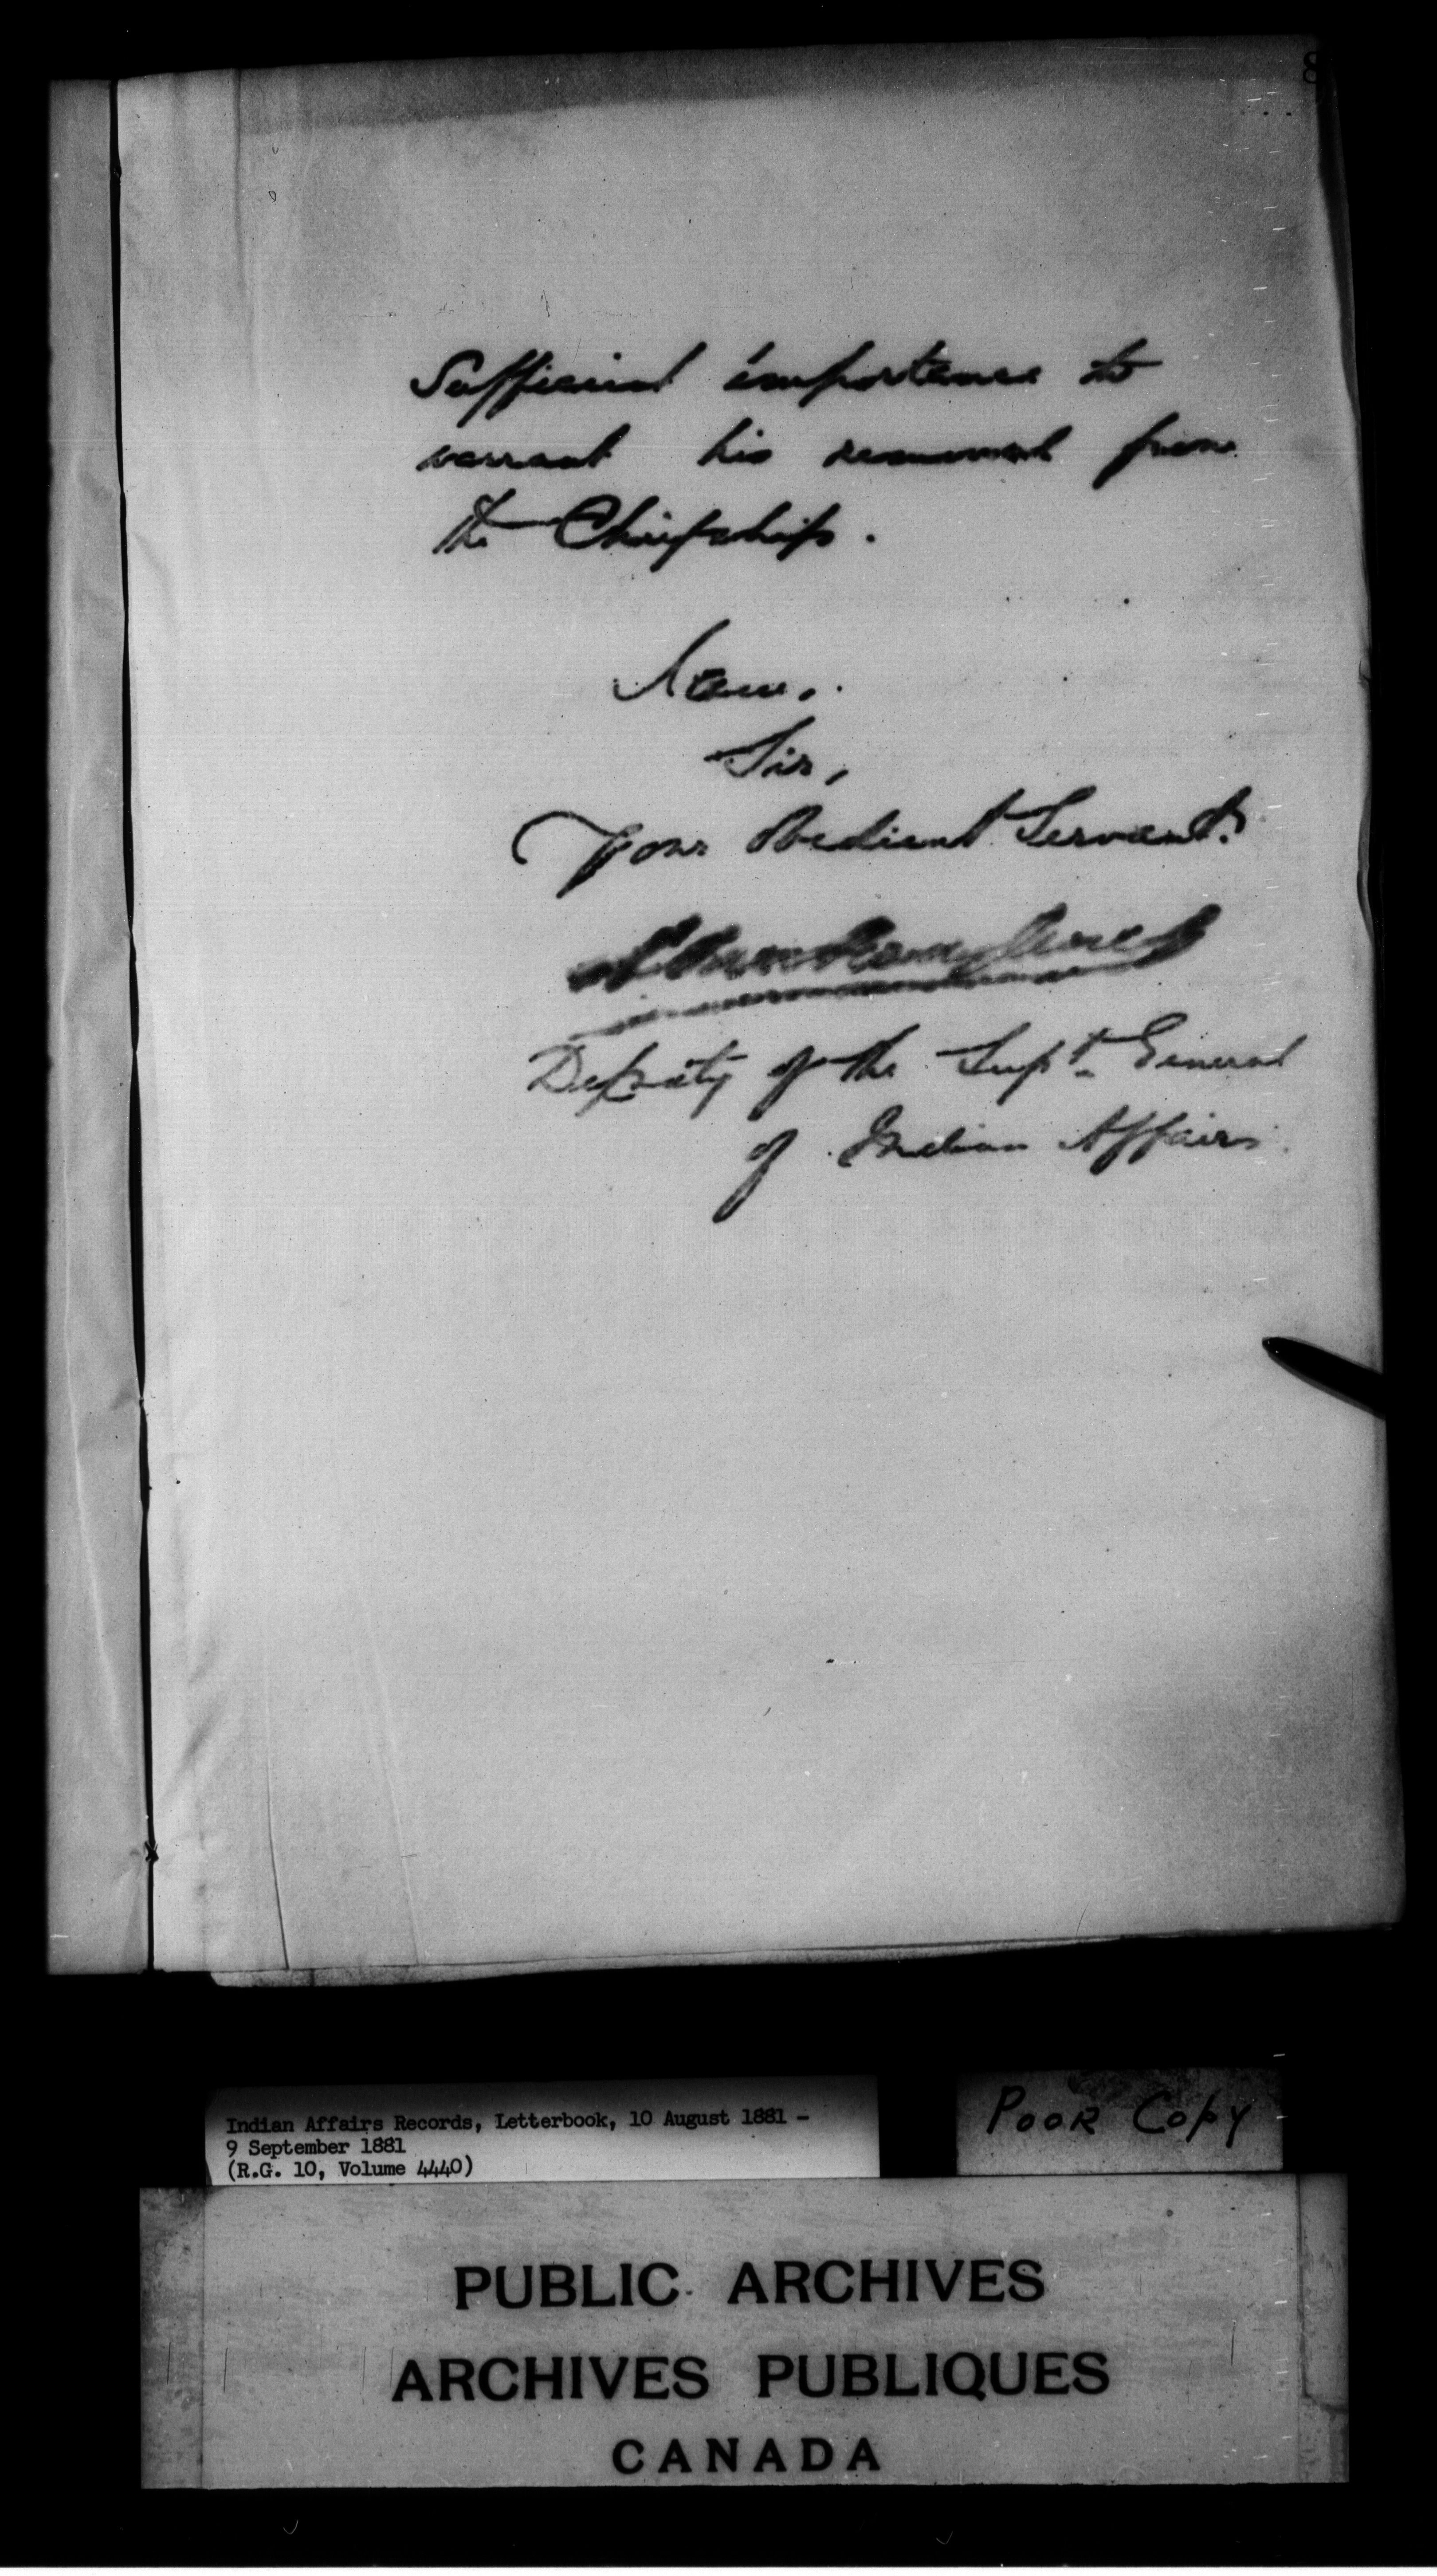 8
Sufficient importance to
warrant his removal from
the Chiefship.
I am,
Sir,
Your Obedient Servant.
Deputy of the Supt. General
of Indian Affairs.
Indian Affairs Records, Letterbook, 10 August 1881 -
9 September 1881
(R.G. 10, Volume 4440)
POOR COPY
PUBLIC ARCHIVES
ARCHIVES PUBLIQUES
CANADA